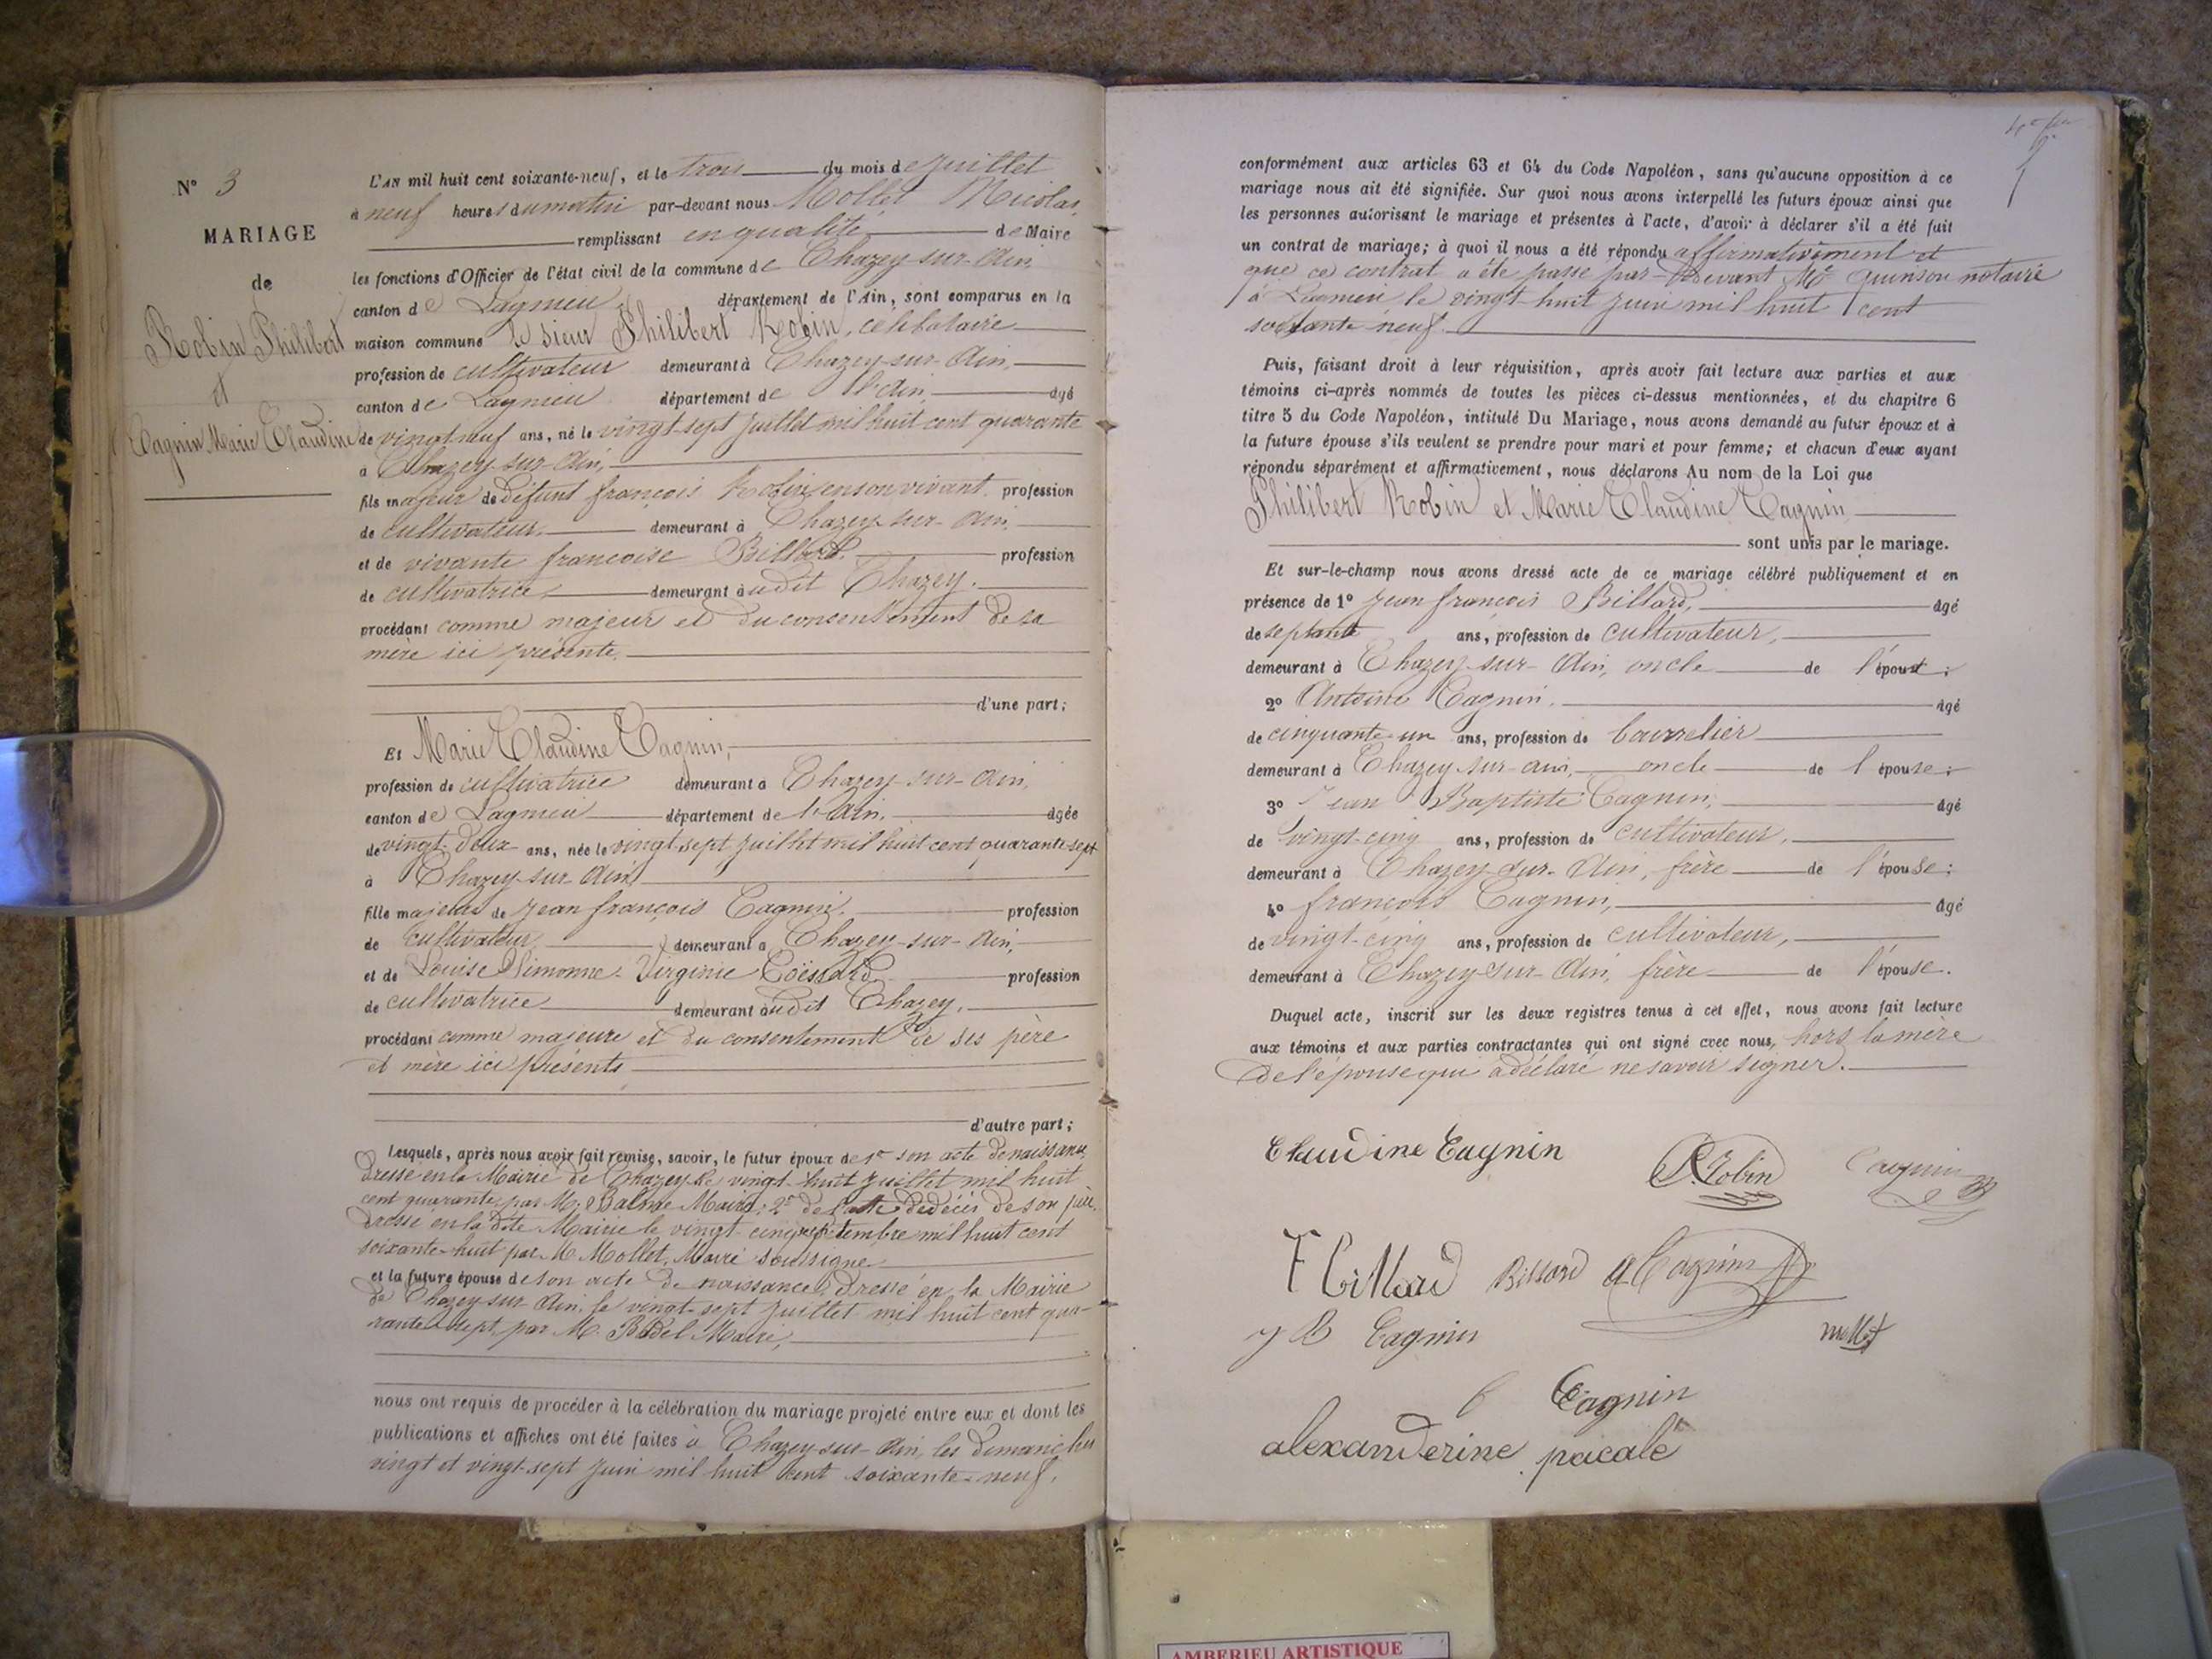 N° 3
MARIAGE
de
Robin Philibert
et
Cagnin Marie Claudine
L'AN mil huit cent soixante-neuf, et le trois du mois de juillet
à neuf heures du matin par-devant nous Mollet Nicolas,
remplissant en qualité de Maire
les fonctions d'Officier de l'état civil de la commune de Chazey-sur-Ain,
canton de Lagnieu, département de l'Ain, sont comparus en la
maison commune le sieur Philibert Robin, célibataire
profession de cultivateur demeurant à Chazey-sur-Ain,
canton de Lagnieu département de l'Ain, âgé
de vingt neuf ans, né le vingt-sept juillet mil huit cent quarante
à Chazey-sur-Ain,
fils majeur de défunt françois Robin, en son vivant, profession
de cultivateur, demeurant à Chazey-sur-Ain,
et de vivante françoise Billard, profession
de cultivatrice, demeurant audit Chazey.
procédant comme majeur et du consentement de sa
mère ici présente.
d'une part;
Et Marie Claudine Cagnin,
profession de cultivatrice demeurant à Chazey-sur-Ain,
canton de Lagnieu département de l'Ain, âgée
de vingt-deux ans, née le vingt-sept juillet mil huit cent quarante-sept
à Chazey-sur-Ain,
fille majeure de Jean françois Cagnin, profession
de cultivateur, demeurant à Chazey-sur-Ain,
et de Louise Simonne-Virginie profession
de cultivatrice demeurant audit Chazey,
procédant comme majeure et du consentement de ses père
et mère ici présents
d'autre part;
Lesquels, après nous avoir fait remise, savoir, le futur époux de 1° son acte de naissance
dressé en la Mairie de Chazey le vingt-huit juillet mil huit
cent quarante, par M. Balme Maire; 2° de l'acte de décès de son père,
dressé en la dite Mairie le vingt-cinq septembre mil huit cent
soixante-huit par M. Mollet, Maire soussigné
et la future épouse de son acte de naissance, dressé en la Mairie
de Chazey-sur-Ain, le vingt-sept juillet mil huit cent qua-
rante-sept, par M. Maire,
nous ont requis de procéder à la célébration du mariage projeté entre eux et dont les
publications et affiches ont été faites à Chazey-sur-Ain, les dimanches
vingt et vingt-sept juin mil huit cent soixante-neuf,
conformément aux articles 63 et 64 du Code Napoléon, sans qu'aucune opposition à ce
mariage nous ait été signifiée. Sur quoi nous avons interpellé les futurs époux ainsi que
les personnes autorisant le mariage et présentes à l'acte, d'avoir à déclarer s'il a été fait
un contrat de mariage; à quoi il nous a été répondu affirmativement et
que ce contrat a été passé par-devant Me Quinson notaire
à Lagnieu le vingt huit juin mil huit cent
soixante neuf.
Puis, faisant droit à leur réquisition, après avoir fait lecture aux parties et aux
témoins ci-après nommés de toutes les pièces ci-dessus mentionnées, et du chapitre 6
titre 5 du Code Napoléon, intitulé Du Mariage, nous avons demandé au futur époux et à
la future épouse s'ils veulent se prendre pour mari et pour femme; et chacun d'eux ayant
répondu séparément et affirmativement, nous déclarons Au nom de la Loi que
Philibert Robin et Marie Claudine Cagnin
sont unis par le mariage.
Et sur-le-champ nous avons dressé acte de ce mariage célébré publiquement et en
présence de 1° Jean françois Billard, âgé
de septante ans, profession de cultivateur,
demeurant à Chazey-sur-Ain, oncle de l'époux;
2° Antoine Cagnin, âgé
de cinquante-un ans, profession de bourrelier
demeurant à Chazey-sur-Ain, oncle de l'épouse;
3° Jean Baptiste Cagnin, âgé
de vingt-cinq ans, profession de cultivateur,
demeurant à Chazey-sur-Ain, frère de l'épouse;
4° françois Cagnin, âgé
de vingt-cinq ans, profession de cultivateur,
demeurant à Chazey-sur-Ain, frère de l'épouse.
Duquel acte, inscrit sur les deux registres tenus à cet effet, nous avons fait lecture
aux témoins et aux parties contractantes qui ont signé avec nous, hors la mère
de l'épouse qui a déclaré ne savoir signer.
Claudine Cagnin P. Robin Cagnin
F Billard Billard A Cagnin
J B Cagnin mollet
Cagnin
alexanderine pacale
AMBERIEU ARTISTIQUE